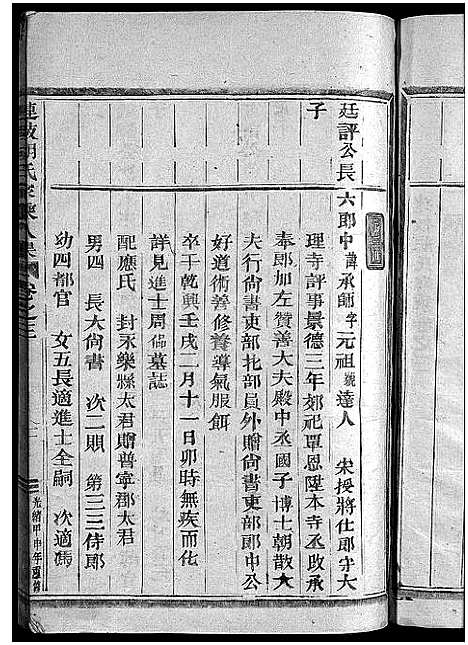 廷評公長子
六郎中諱承師字元祖號達人 宋授將仕郎守大
理寺評事景德三年郊祀覃恩陞本寺丞改承
奉郎加左贊善大夫殿中丞國子博士朝散大
夫行尙書吏部比部員外贈尙書吏部郎中公
好道術善修養導氣服餌
卒于乾興壬戌二月十一日卯時無疾而化
詳見進士周 墓誌
配應氏 封永樂縣太君贈普寧郡太君
男四 長大尙書 次二 第三三侍郎
幼四都官 女五長適進士全嗣 次適
胡氏 卷之三
光緒甲申年重脩